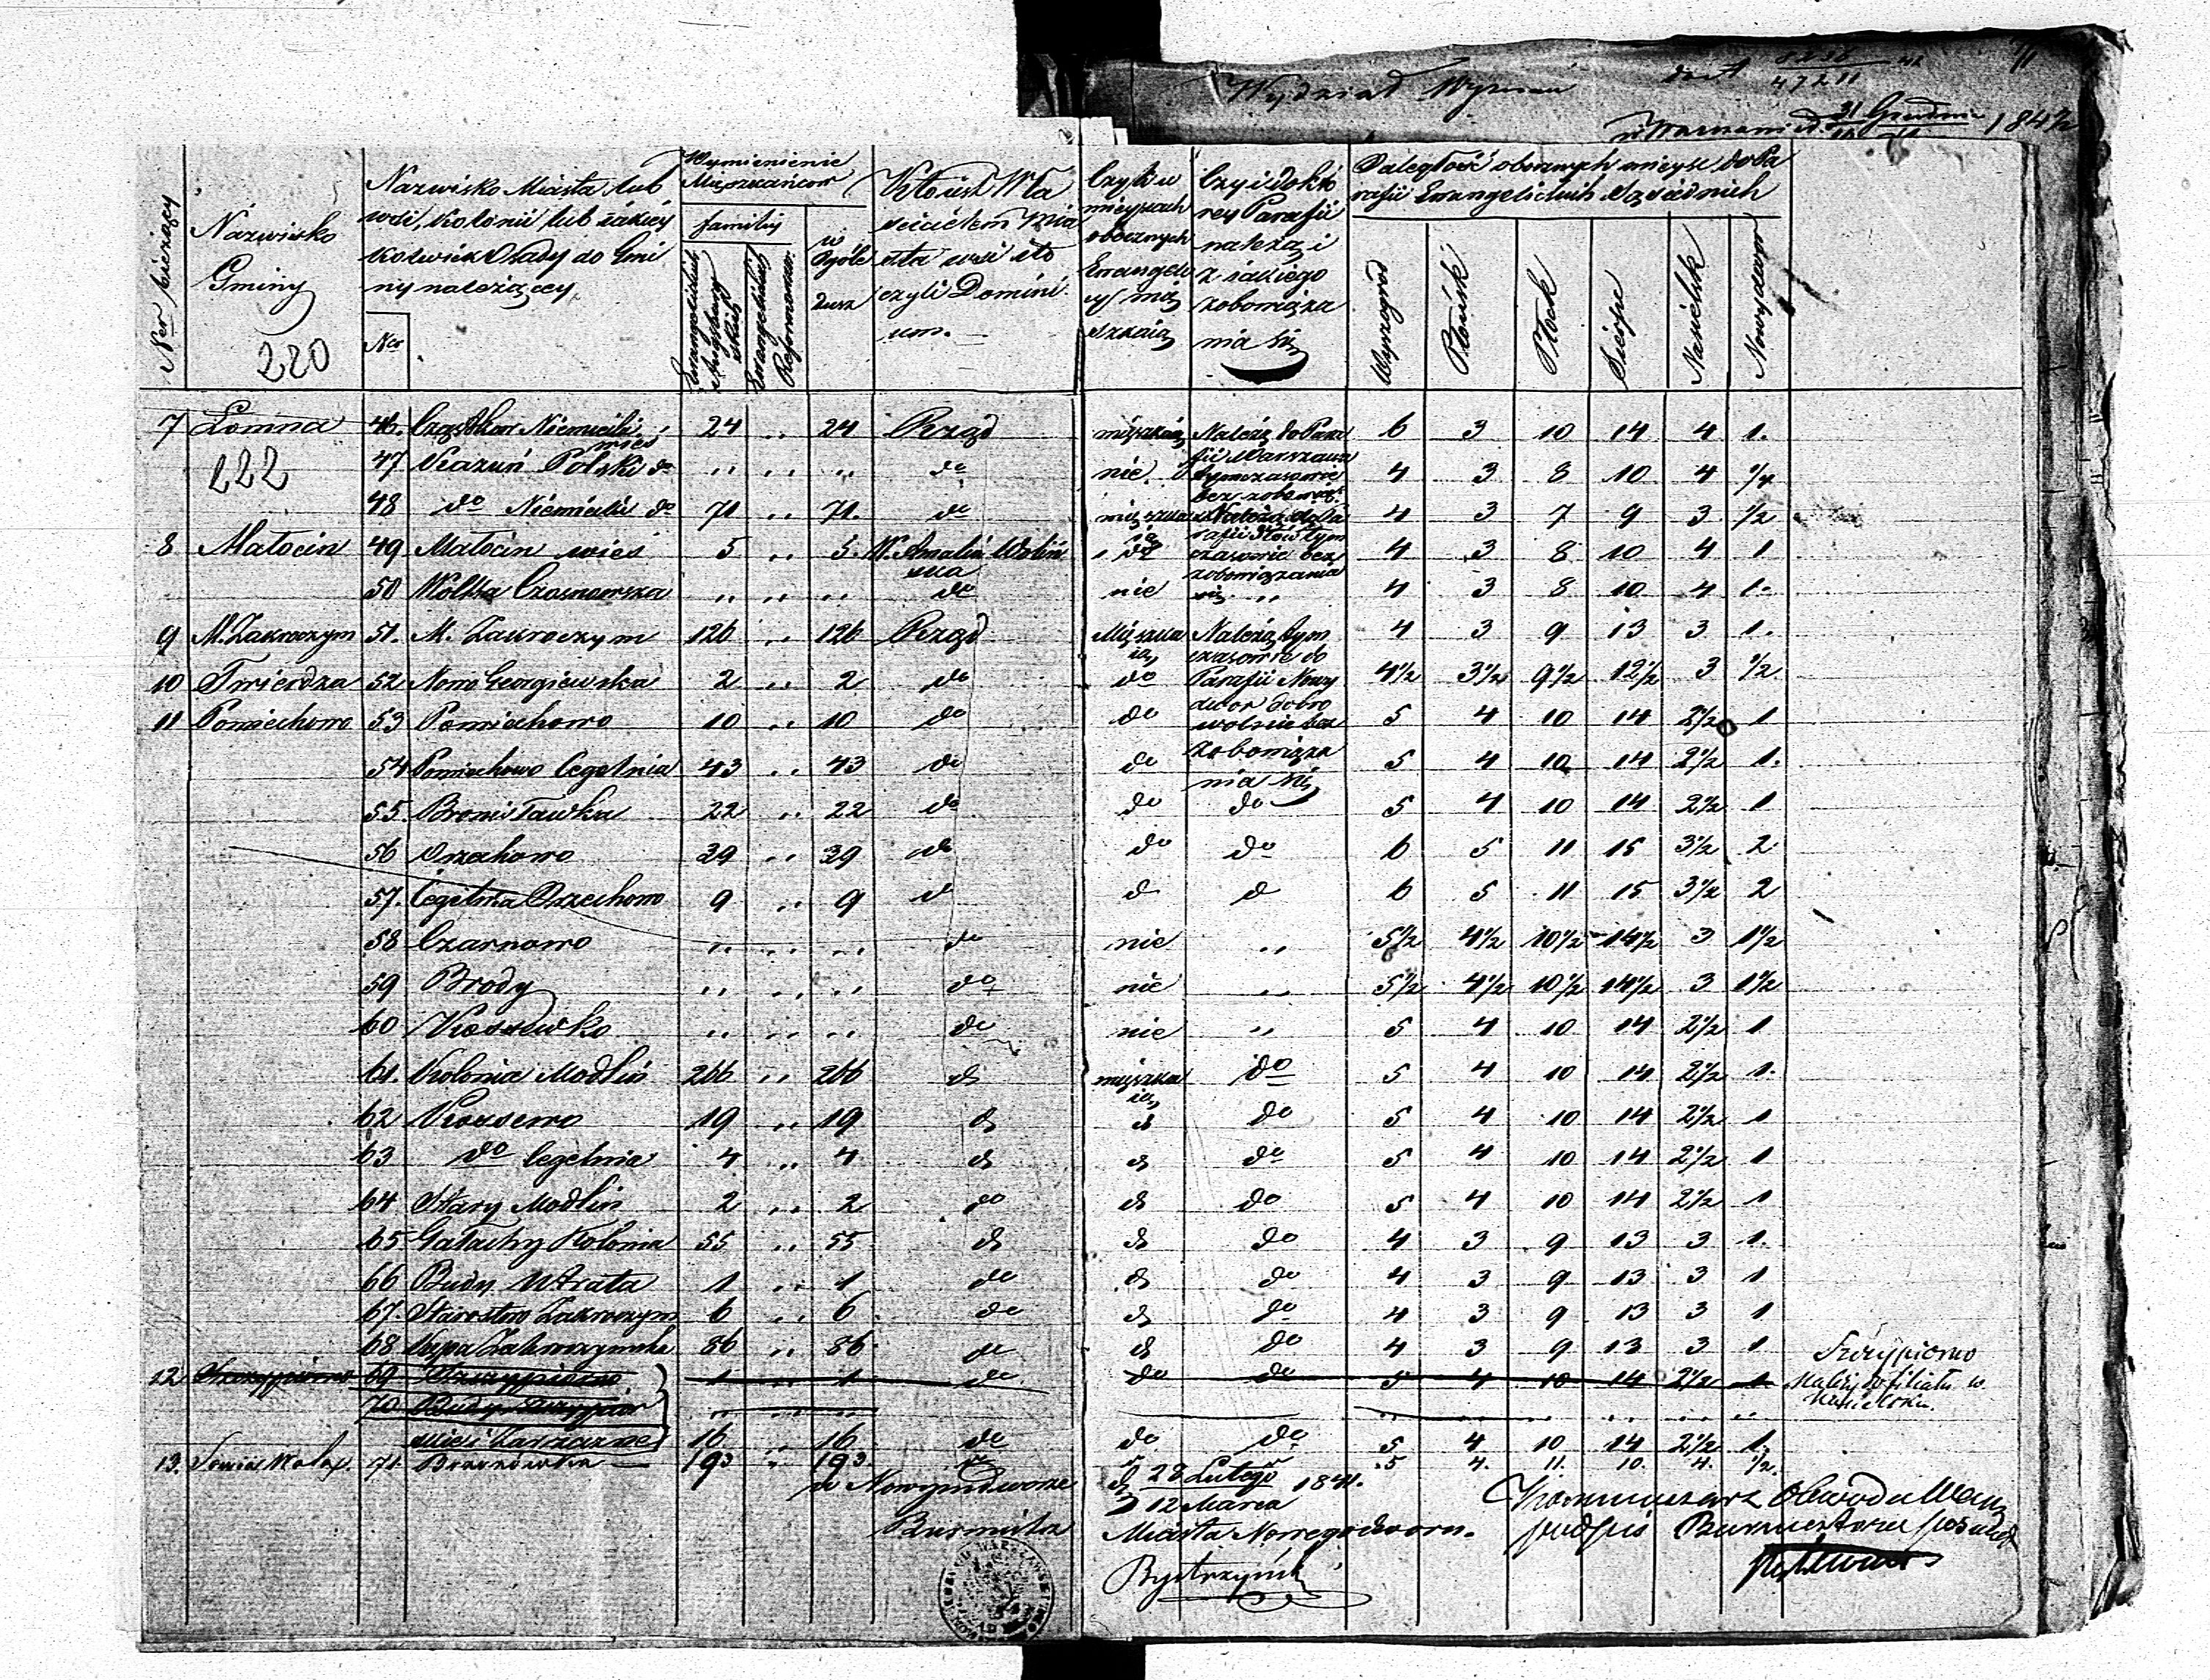 Wydział Wyznań
184½
Ner bieżący
Nazwisko
Gminy
220
Nazwisko Miasta lub
wsi, Kolonii lub iakiéy
kolwiek Osady do Gmi
ny należącey
Nro
Wymienienie
Mieszkańcow
familiy
Ewangelickich
Augsburgskich
Ewangelickich
Reformowan.
w
Ogóle
dusz
Kto iest Wła
ścicielem Mia
sta wsi
czyli Domini
um.
Czyli w
mieyscach
obocznych
Ewangeli
cy mie
szkaią
Czy i do któ
rey Parafii
należą i
z iakiego
zobowiąza
nia się
Odległość obocznych mieysc do Pa
rafii Ewangelickich sąsiednich
Wyszogrod
Płońsk
Płock
Sierpc
Nasielsk
Nowydwor
7 Łomna 46. Cząstkow Niemiecki wieś 24 „ 24 Rząd mieszkaią Należą do Para 6 3 10 14 4 1.
222 47 Kazuń Polski do „ „ „ do nie. fii Warszawa tymczasowie 4 3 8 10 4 ¼
48 do Niemiecki do 71 „ 71. do mieszka Należą do Pa 4 3 7 9 3 ½
8 Małocin 49 Małocin wieś 5 „ 5. W. Amalia Wolińska do czasowie bez 4 3 8 10 4 1
50 Wólka Czosnowska „ „ „ do nie zobowiązania się „ 4 3 8 10 4 1.
9 M. Zakroczym 51. M. Zakroczym 126 „ 126 Rząd Mieszkaią Należą tym 4 3 9 13 3 1.
10 Twierdza 52 Nowo Georgiewska 2 „ 2 do do czasowie do Parafii Nowy 4½ 3½ 9½ 12½ 3 ½
11 Pomiechowo 53 Pomiechowo 10 „ 10 do do dwor dobro wolnie bez 5 4 10 14 2½ 1
54 Pomiechowo Cegelnia 43 „ 43 do do zobowiąza nia się 5 4 10 14 2½ 1.
55. Bronisławka 22 „ 22 do do do 5 4 10 14 2½ 1
56 Orzechowo 39 „ 39 do do do 6 5 11 15 3½ 2
57. Cegelnia Orzechowo 9 „ 9 d d d 6 5 11 15 3½ 2
58 Czarnowo „ „ „ do nie „ 5½ 4½ 10½ 14½ 3 1½
59 Brody „ „ „ do nie „ 5½ 4½ 10½ 14½ 3 1½
60 Kossewko „ „ „ do nie „ 5 4 10 14 2½ 1
61. Kolonia Modlin 266 „ 266 do mieszkaią do 5 4 10 14 2½ 1.
62 Kossewo 19 „ 19 do do do 5 4 10 14 2½ 1
63 do Cegelnia 4 „ 4 do do do 5 4 10 14 2½ 1
64 Stary Modlin 2 „ 2 do do do 5 4 10 14 2½ 1
65 Gałachy Kolonia 55 „ 55 do do do 4 3 9 13 3 1.
66 Budy Utrata 1 „ 1 do do do 4 3 9 13 3 1
67. Starostwo Zakroczym 6 „ 6 do do do 4 3 9 13 3 1
68 Kępa Zakroczymska 86 „ 86 do do do 4 3 9 13 3 1
12 Szczypiorno 69 Szczypiorno 1 1 do do do 5 4 10 14 2½ 1 Szczypiorno
70 Budy „ „ „ należy do filiału w
Nasielsku.
16 „ 16 do do do 5 4 10 14 2½ 1.
13. 71. 193 „ 193. do 5 4. 11. 10. 4. ½.
w Nowymdworze d 28 Lutego / 12 Marca 1841.
Burmistrz Miasta Nowegodworu.
Bystrzyński
podpis Burmistrza